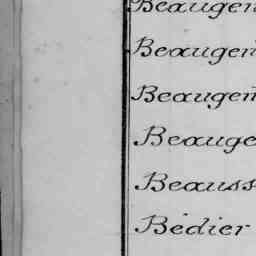 Beaugen
Beaugen
Beaugen
Beauge
Beauss
Bédier